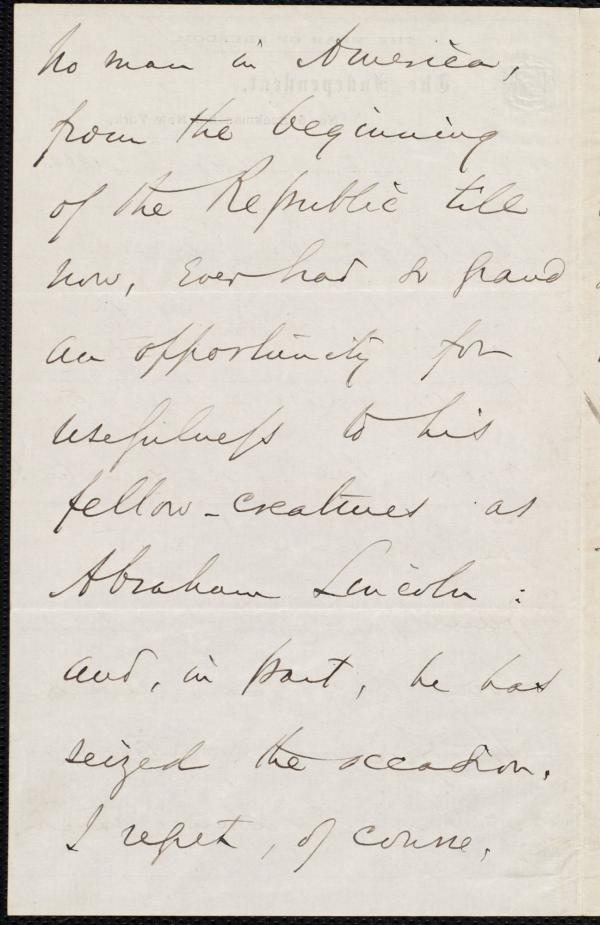 no man in America,
from the beginning
of the Republic till
now, ever had so grand
an opportunity for
usefulness to his
fellow-creatures as
Abraham Lincoln :
and, in part, he has
seized the occasion.
I regret, of course,